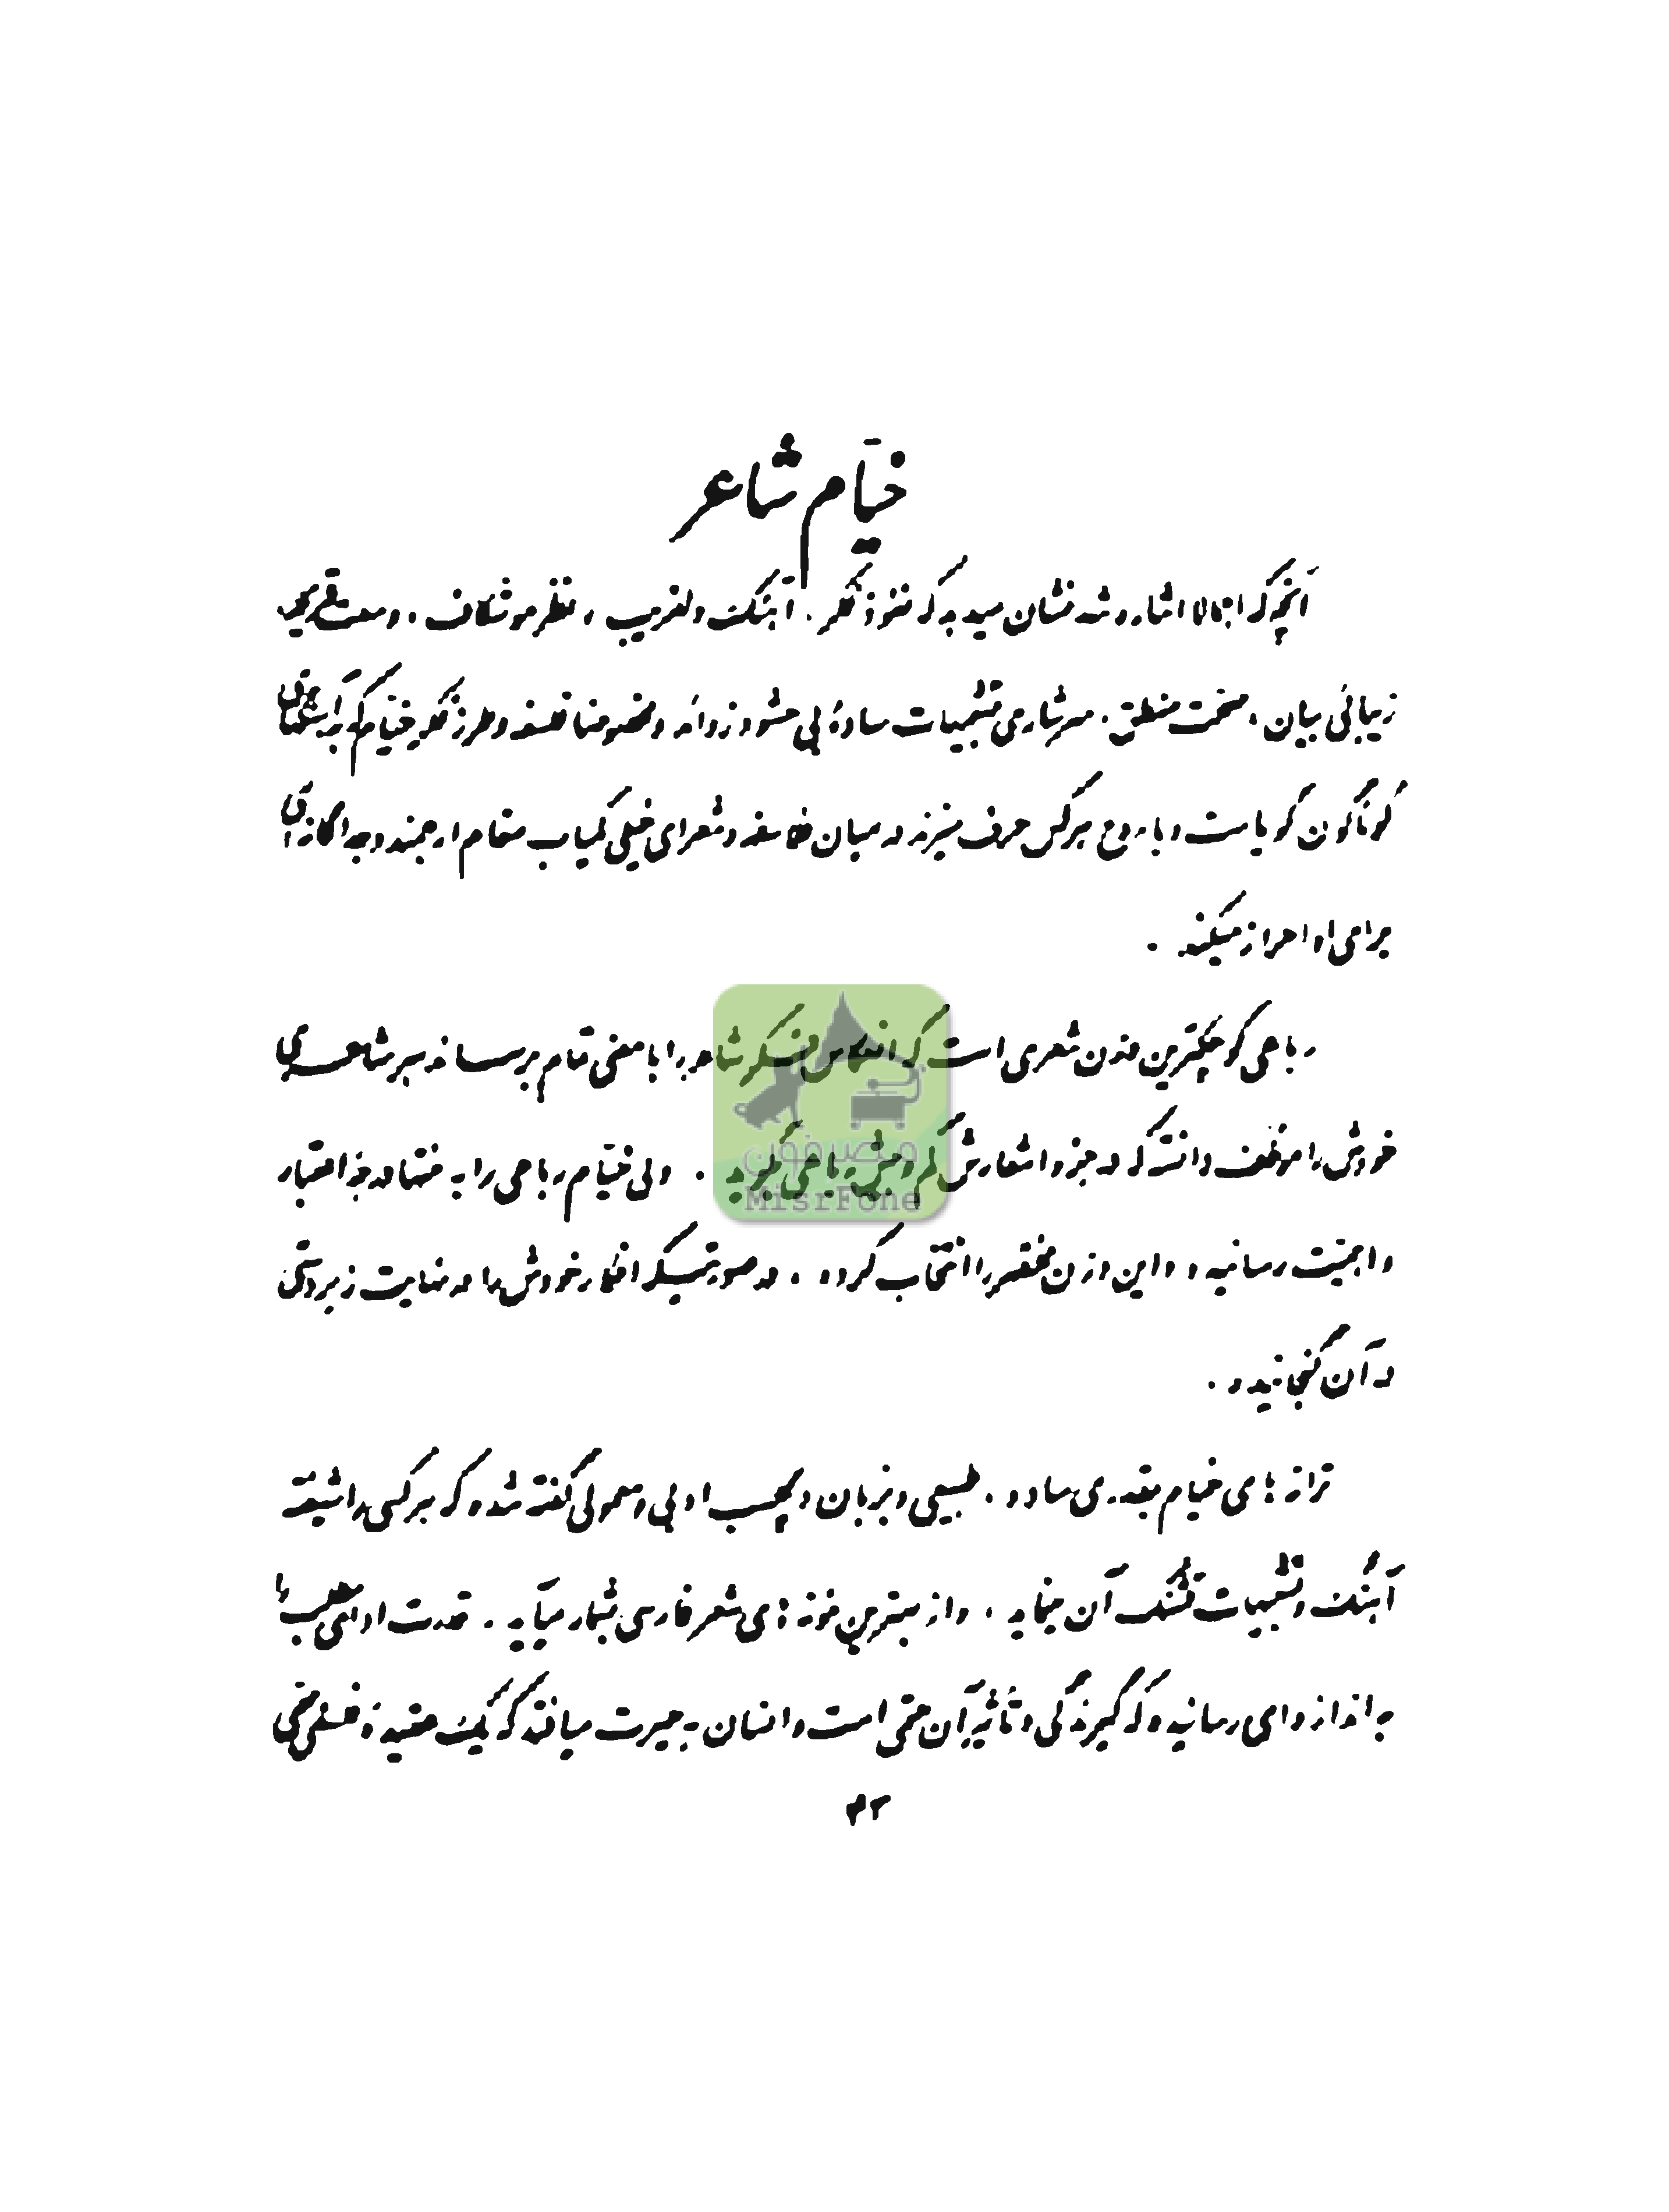 خیّام شاعر
آنچه که اجمالا اشاره شد نشان میدهد که نفوذ فکر، آهنگ دلفریب، نظر موشکاف، وسعت قریحه،
زیبائی بیان، صحت منطق، سرشاری تشبیهات سادهٔ بی حشو و زوائد و مخصوصا فلسفه و طرز فکر خیّام که به آهنگهای
گوناگون گویاست و با روح هرکس حرف میزند در میان فلاسفه و شعرای خیلی کمیاب مقام ارجمند و جداگانه‌ای
برای او احراز میکند.
رباعی کوچکترین وزن شعری است که انعکاس فکر شاعر را با معنی تمام برساند هر شاعری
خودش را موظف دانسته که در جزو اشعارش کم و بیش رباعی بگوید. ولی خیّام رباعی را به منتها درجه اعتبار
و اهمیّت رسانیده و این وزن مختصر را انتخاب کرده، در صورتیکه افکار خودش را در نهایت زبردستی
در آن گنجانیده.
ترانه های خیام بقدری ساده، طبیعی و بزبان دلچسب ادبی و معمولی گفته شده که هرکسی را شیفته
آهنگ و تشبیهات قشنگ آن مینماید، و از بهترین نمونه های شعر فارسی بشمار میآید. قدرت ادای مطلب را
به اندازه‌ای رسانیده که گیرندگی و تأثیر آن حتمی است و انسان به حیرت میافتد که یک عقیدهٔ فلسفی مهم
۴۲
مصرفون
MisrFone